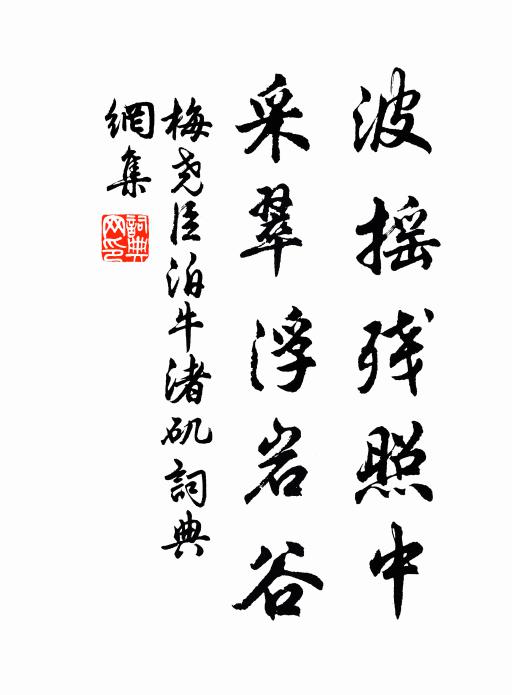 波摇残照中
采翠浮岩谷
梅尧臣泊牛渚矶詞典
網集
詞典网印